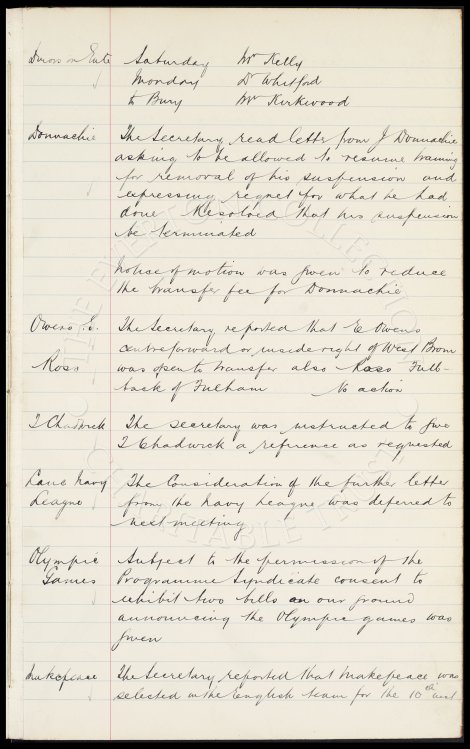 Saturday Mr Kelly
Monday Dr Whitford
to Bury Mr Kirkwood
Donnachie The Secretary read letter from J Donnachie
asking to be allowed to resume training
for removal of his suspension and
expressing regret for what he had
done Resolved that his suspension
be terminated
Notice of motion was given to reduce
the transfer fee for Donnachie
Owens E. The Secretary reported that E Owens
centreforward or inside right of West Brom
Ross was open to transfer also Ross Full-
back of Fulham No action
T Chadwick The secretary was instructed to give
T Chadwick a reference as requested
Lanc Navy The Consideration of the further letter
League from the Navy League was deferred to
next meeting
Olympic Subject to the permission of the
Games Programme Syndicate consent to
exhibit two bills on our ground
announcing the Olympic games was
given
Makepeace The Secretary reported that Makepeace was
selected in the English team for the 10th inst